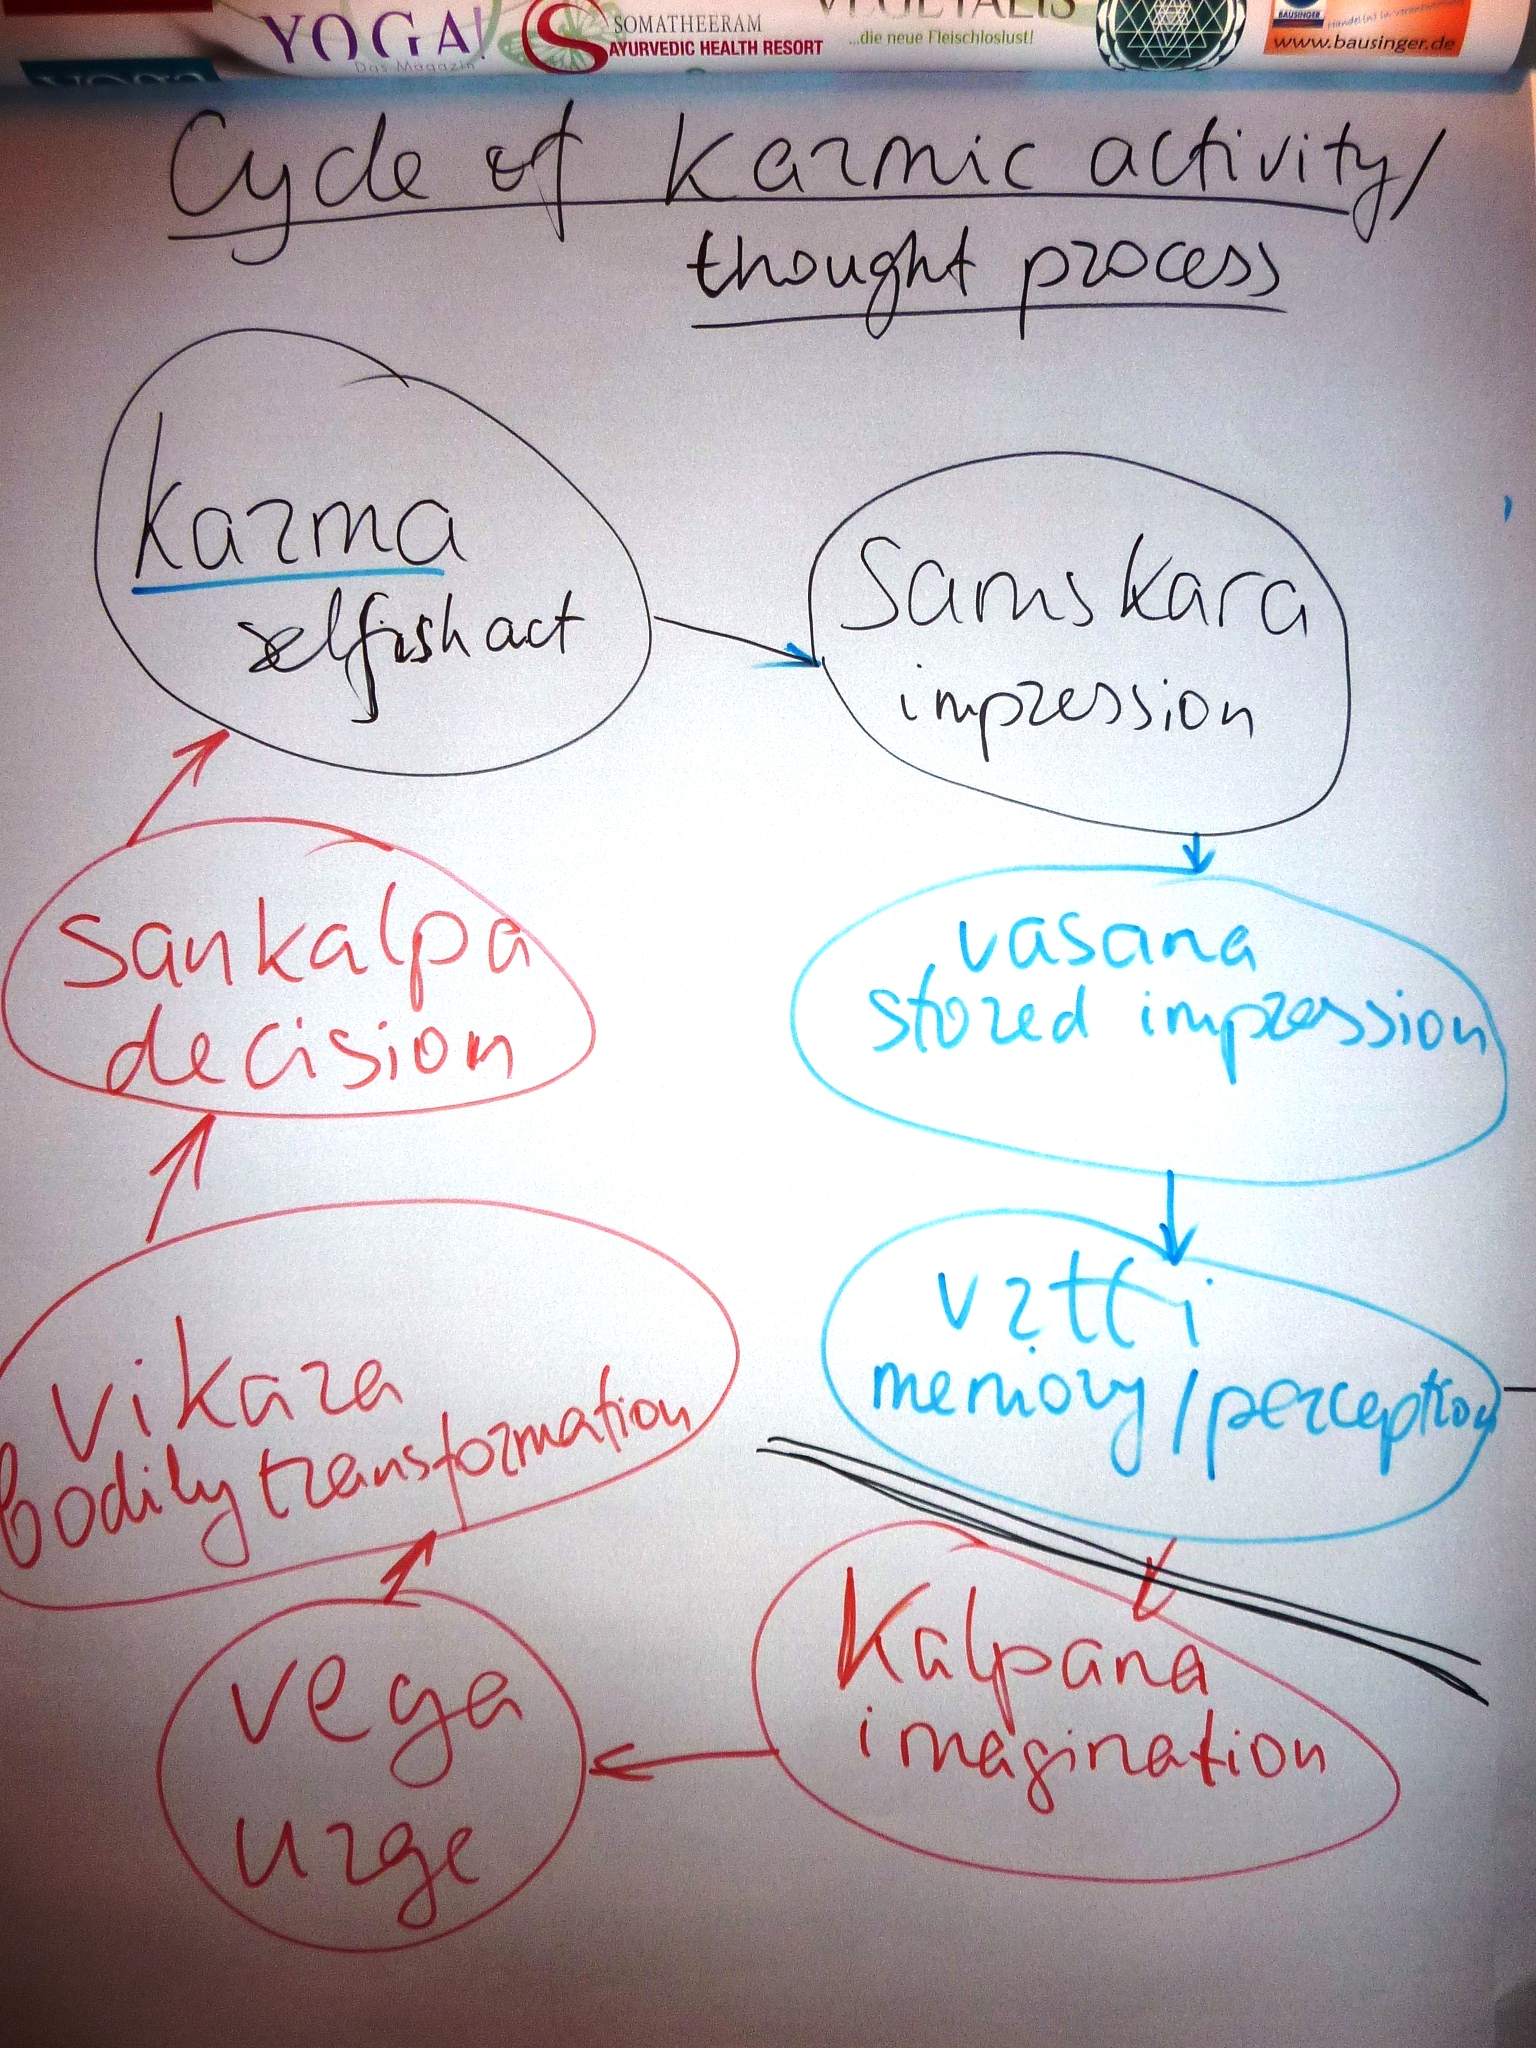 YOGA!
Das Magazin
SOMATHEERAM
AYURVEDIC HEALTH RESORT
VEGETALIS
...die neue Fleischloslust!
BAUSINGER
www.bausinger.de
Cycle of Karmic activity/
thought process
Karma
selfish act
Samskara
impression
Sankalpa
decision
vasana
stored impression
vrtti
memory/perception
vikara
bodily transformation
Kalpana
imagination
vega
urge